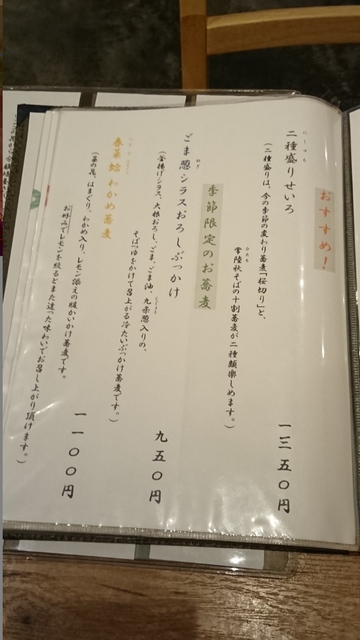 おすすめ！
二種盛りせいろ
一三五〇円
（二種盛りは、今の季節の変わり蕎麦「桜切り」と、
常陸秋そばの十割蕎麦が二種類楽しめます。）
季節限定のお蕎麦
ごま葱シラスおろしぶっかけ
九五〇円
（釜揚げシラス、大根おろし、ごま、ごま油、九条葱入りの、
そばつゆをかけて召上がる冷たいぶっかけ蕎麦です。）
春菜蛤わかめ蕎麦
一一〇〇円
（菜の花、はまぐり、わかめ入り、レモン添えの暖かいかけ蕎麦です。
お好みでレモンを絞るとまた違った味わいでお召し上がり頂けます。）